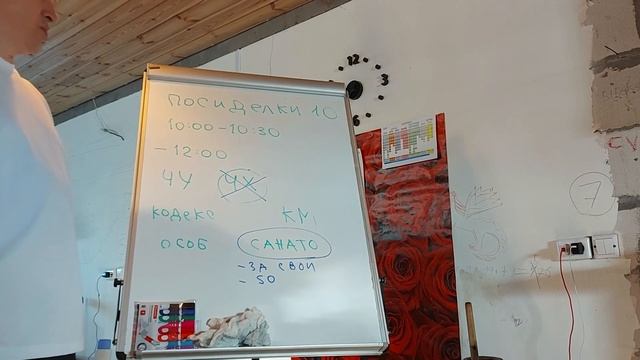 ПОСИДЕЛКИ 10
10:00-10:30
-12:00
ЧУ ЧХ
КОДЕКС КМ
ОСОБ САНАТО
- ЗА СВОИ
- 50
12
3
6
7